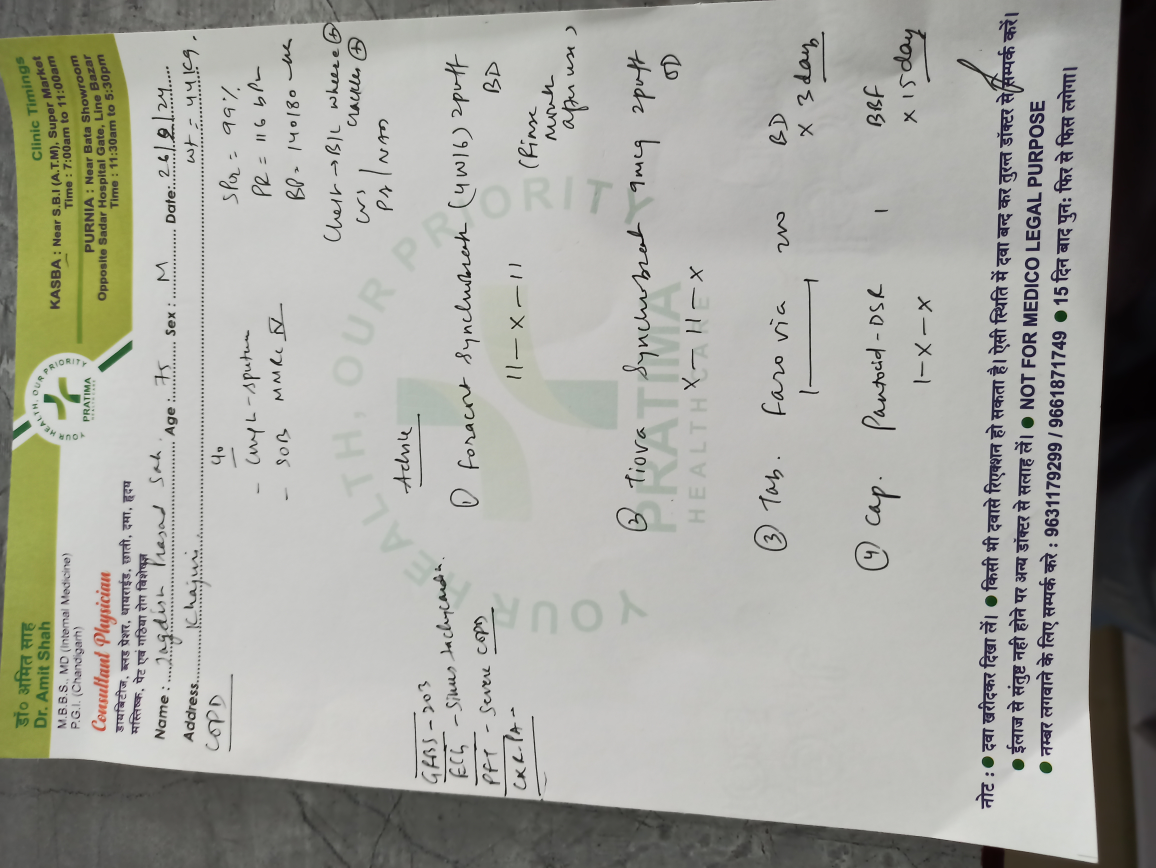 डॉ० अमित साह
Dr. Amit Shah
M.B.B.S., MD (Internal Medicine)
P.G.I. (Chandigarh)
Consultant Physician
डायबिटीज, ब्लड प्रेशर, थायराईड, छाती, दमा, हृदय
मस्तिष्क, पेट एवं गठिया रोग विशेषज्ञ
YOUR HEALTH, OUR PRIORITY
PRATIMA
Clinic Timings
KASBA : Near S.B.I (A.T.M), Super Market
Time : 7:00am to 11:00am
PURNIA : Near Bata Showroom
Opposite Sadar Hospital Gate, Line Bazar
Time : 11:30am to 5:30pm
Name : Jagdish Prasad Sah. Age : 75 Sex : M Date: 26/9/24
Address Khajuri Wt = 44 kg.
COPD
c/o
- Cough - sputum
- SOB MMRC IV
SPO2 = 99%
PR = 116 bpm
BP = 140/80
Chest → B/L wheeze (+)
crackles (+)
P/A / NAD
GRBS - 203
ECG - Sinus tachycardia.
PFT - Severe COPD
CXR PA -
Advice
① Foracort Synchrobreath (4W16) 2puff BD
11 - X - 11
(Rinse mouth after use)
② Tiova Synchrobreath 9mcg 2puff OD
X - 11 - X
③ Tab. Farovia 200 BD
1 1 x 3 days
④ Cap. Pantocid-DSR 1 BBF
1-X-X x 15 days
YOUR HEALTH, OUR PRIORITY
PRATIMA
HEALTH CARE
नोट : ● दवा खरीदकर दिखा लें। ● किसी भी दवासे रिएक्शन हो सकता है। ऐसी स्थिति में दवा बन्द कर तुरन्त डॉक्टर से सम्पर्क करें।
● ईलाज से संतुष्ट नही होने पर अन्य डॉक्टर से सलाह लें। ● NOT FOR MEDICO LEGAL PURPOSE
● नम्बर लगवाने के लिए सम्पर्क करे : 9631179299 / 9661871749 ● 15 दिन बाद पुनः फिर से फिस लगेगा।